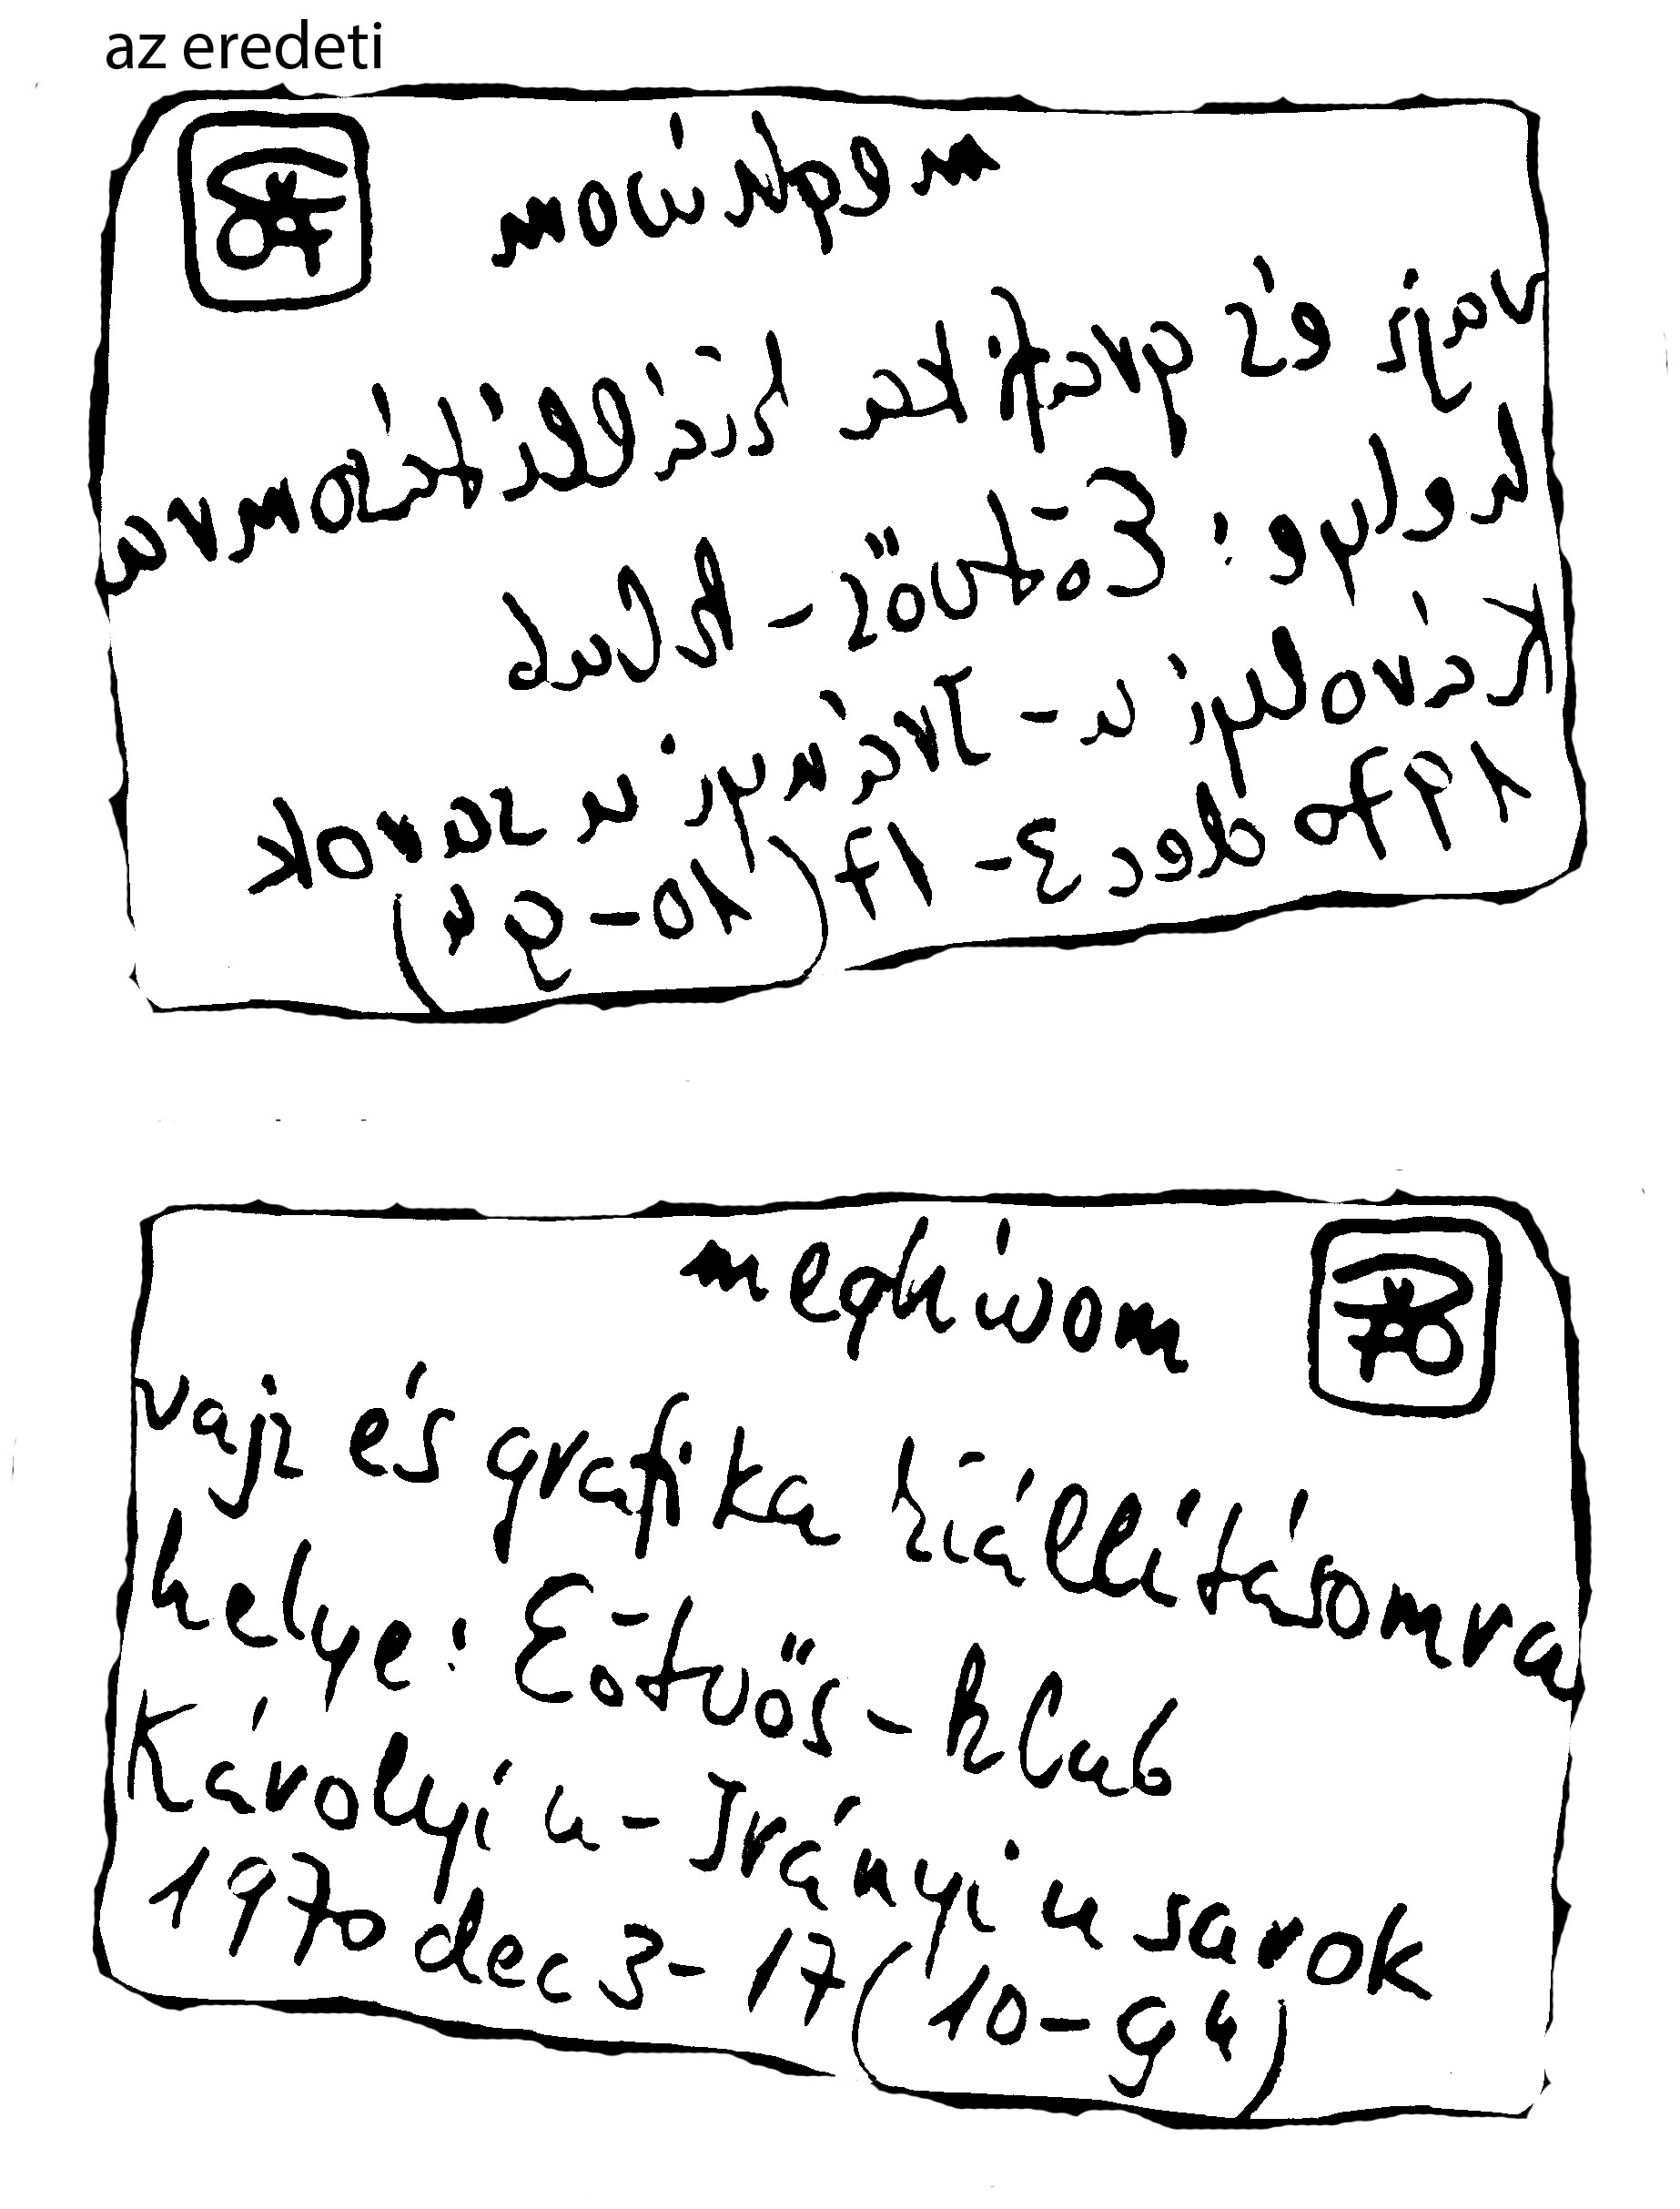 az eredeti
meghívom
vajz és grafika kiállításomra
helye: Eötvös-klub
Károlyi u - Irányi u sarok
1970 dec 3 - 17 (10-9 h)
70
meghívom
vajz és grafika kiállításomra
helye: Eötvös-klub
Károlyi u - Irányi u sarok
1970 dec 3 - 17 (10-9 h)